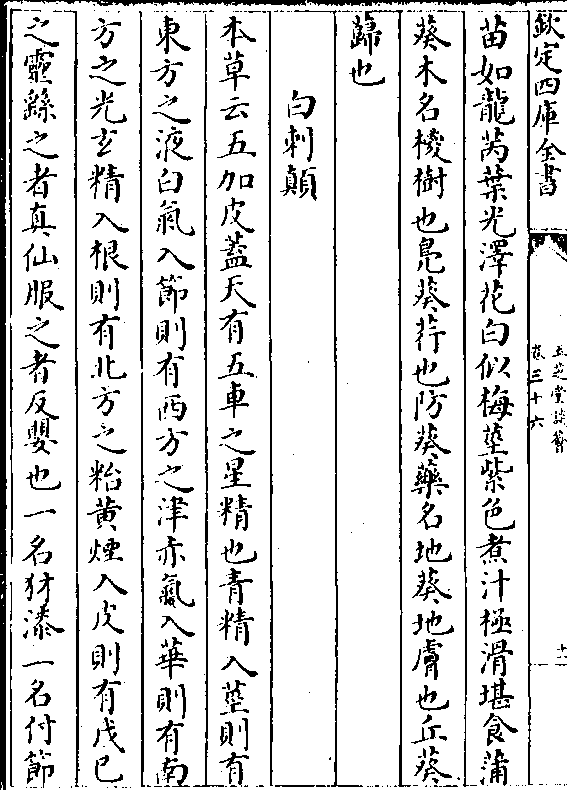 欽定四庫全書
玉芝堂談薈
卷三十六
十一
苗如龍芮葉光澤花白似梅莖紫色煮汁極滑堪食蒲
葵木名椶樹也鳧葵荇也防葵藥名地葵地膚也丘葵
蘬也
白刺顛
本草云五加皮蓋天有五車之星精也青精入莖則有
東方之液白氣入節則有西方之津赤氣入華則有南
方之光玄精入根則有北方之粘黄煙入皮則有戊已
之靈繇之者真仙服之者反嬰也一名犲漆一名付節